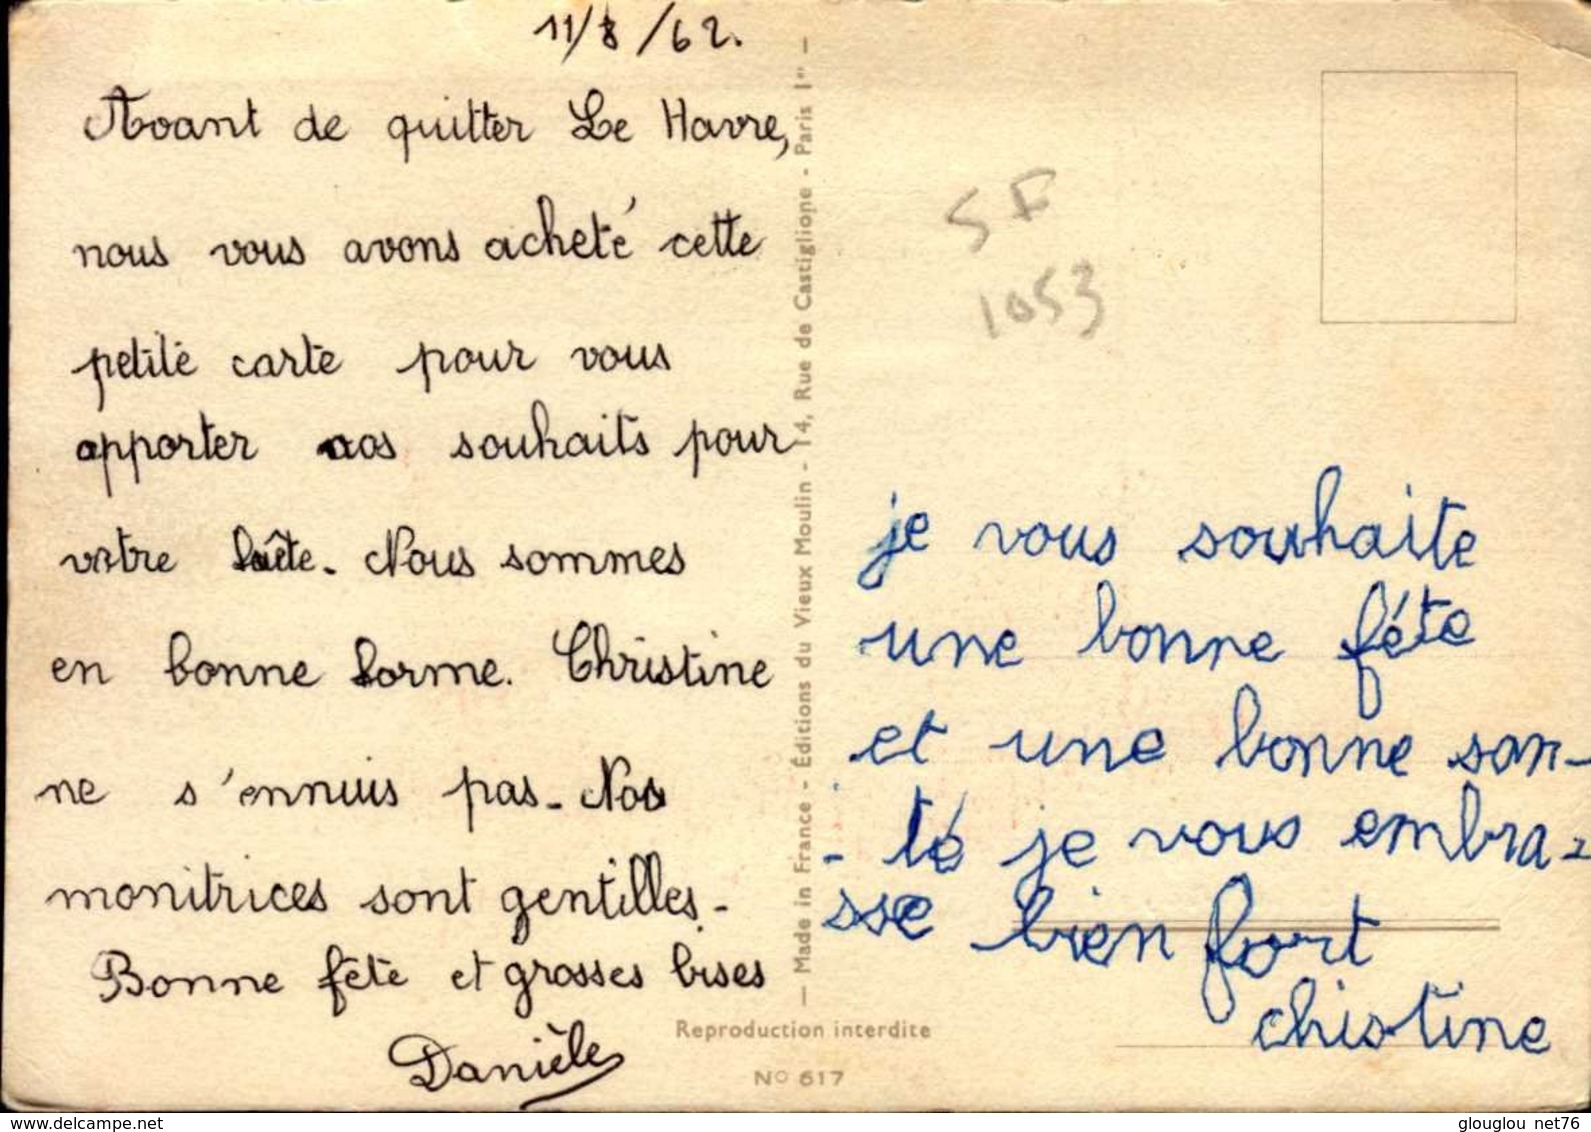 11/8/62.
Avant de quitter Le Havre,
nous vous avons acheté cette
petite carte pour vous
apporter nos souhaits pour
votre fête. Nous sommes
en bonne forme. Christine
ne s'ennuis pas. Nos
monitrices sont gentilles.
Bonne fête et grosses bises
Danièle
— Made in France - Éditions du Vieux Moulin - 14, Rue de Castiglione - Paris 1er —
Reproduction interdite
No 617
SF
1053
je vous souhaite
une bonne féte
et une bonne san-
- té je vous embra-
sse bien fort
chistine
glouglou net76